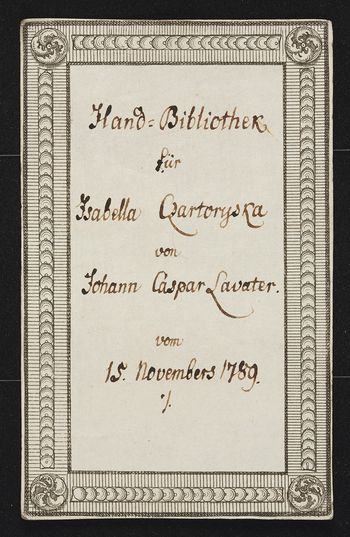 Hand=Bibliothek
für
Isabella Czartoryska
von
Johann Caspar Lavater.
vom
15. Novembers 1789.